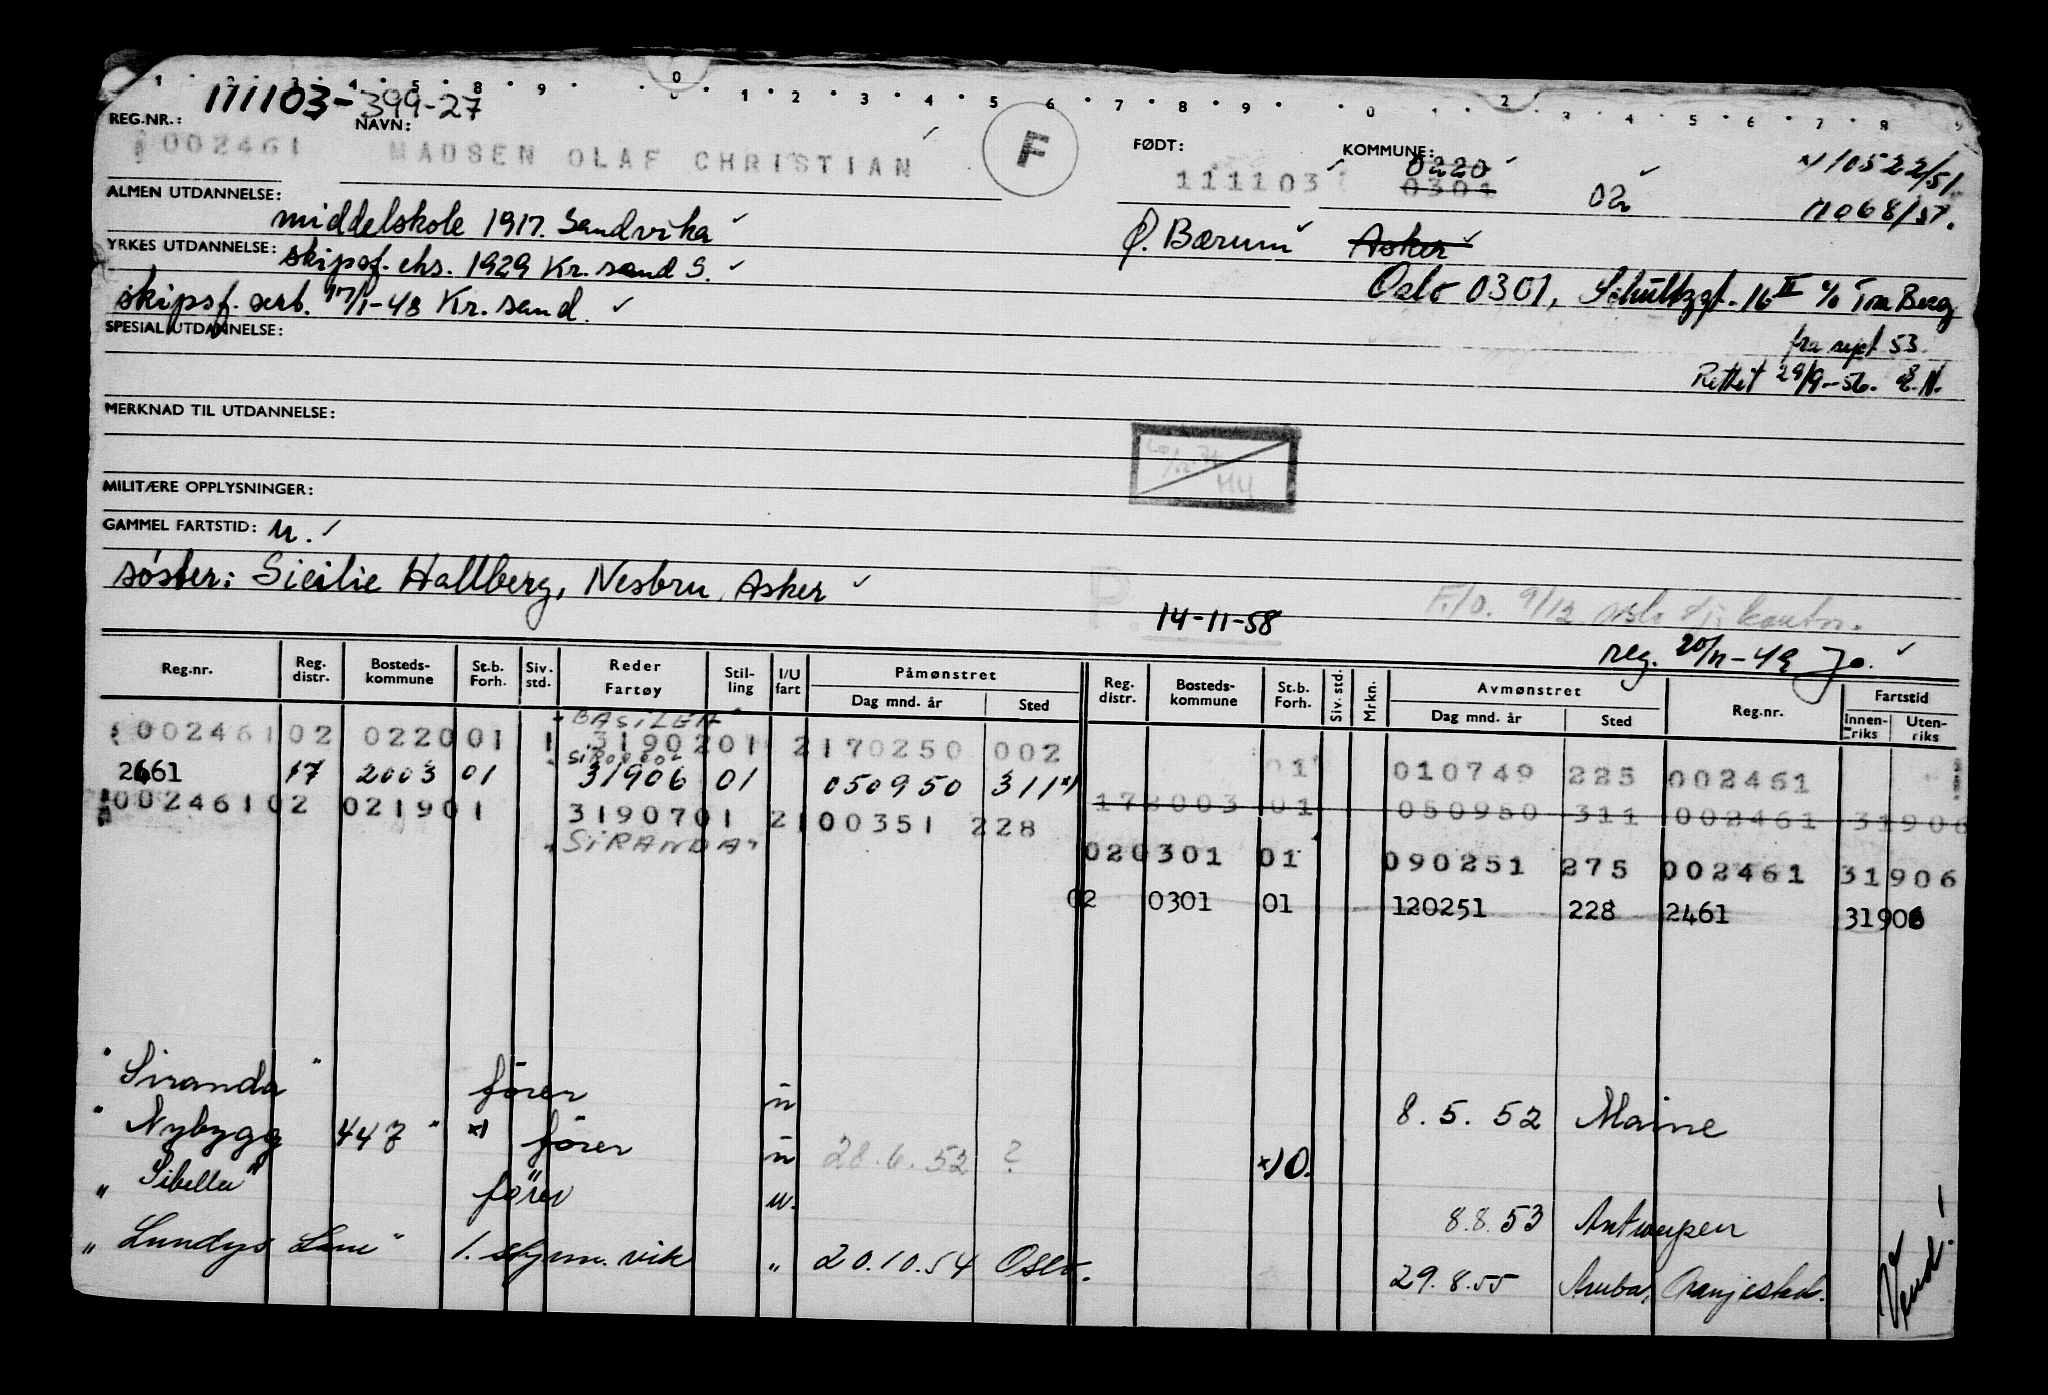 111103-399-27
REG.NR.: NAVN: FØDT: KOMMUNE:
002461 MADSEN OLAF CHRISTIAN F 111103 0220 0301 02 x) 10522/51
11068/51.
ALMEN UTDANNELSE: middelskole 1917. Sandvika Ø. Bærum Asker
YRKES UTDANNELSE: skipsf. eks. 1929 Kr.sand S.
Oslo 0301, Schultzgt. 16 II c/o Berg
skipsf. sert. 17/1-48 Kr.sand.
SPESIAL UTDANNELSE:
fra sept 53.
Rettet 29/9-56.
MERKNAD TIL UTDANNELSE:
MILITÆRE OPPLYSNINGER:
GAMMEL FARTSTID: u.
søster: Sicilie Hallberg, Nesbru, Asker
P. 14-11-58
F./O. 9/12
reg. 20/11-49 Jo.
Reg.nr. Reg. distr. Bosteds-kommune St.b. Forh. Siv. std. Reder Fartøy Stil-ling I/U fart Påmønstret Dag mnd. år Sted Reg. distr. Bosteds-kommune St.b. Forh. Siv. std. Mrkn. Avmønstret Dag mnd. år Sted Reg.nr. Fartstid Innen-riks Uten-riks
"BASILEA"
002461 02 0220 01 1 31902 01 2 170250 002
01 010749 225 002461
"SIROCCO"
2461 17 2003 01 31906 01 050950 311 x)
17 2003 01 050950 311 002461 31906
002461 02 0219 01 31907 01 2 100351 228
"SIRANDA"
02 0301 01 090251 275 002461 31906
02 0301 01 120251 228 2461 31906
"Siranda" fører u 8.5.52 Maine
"Nybygg 447" x) fører u 28.6.52 ? x) O.
"Sibella" fører u. 8.8.53 Antwerpen
"Lundys Lane" 1. styrm. vik " 20.10.54 Oslo. 29.8.55 Aruba,
Vend!